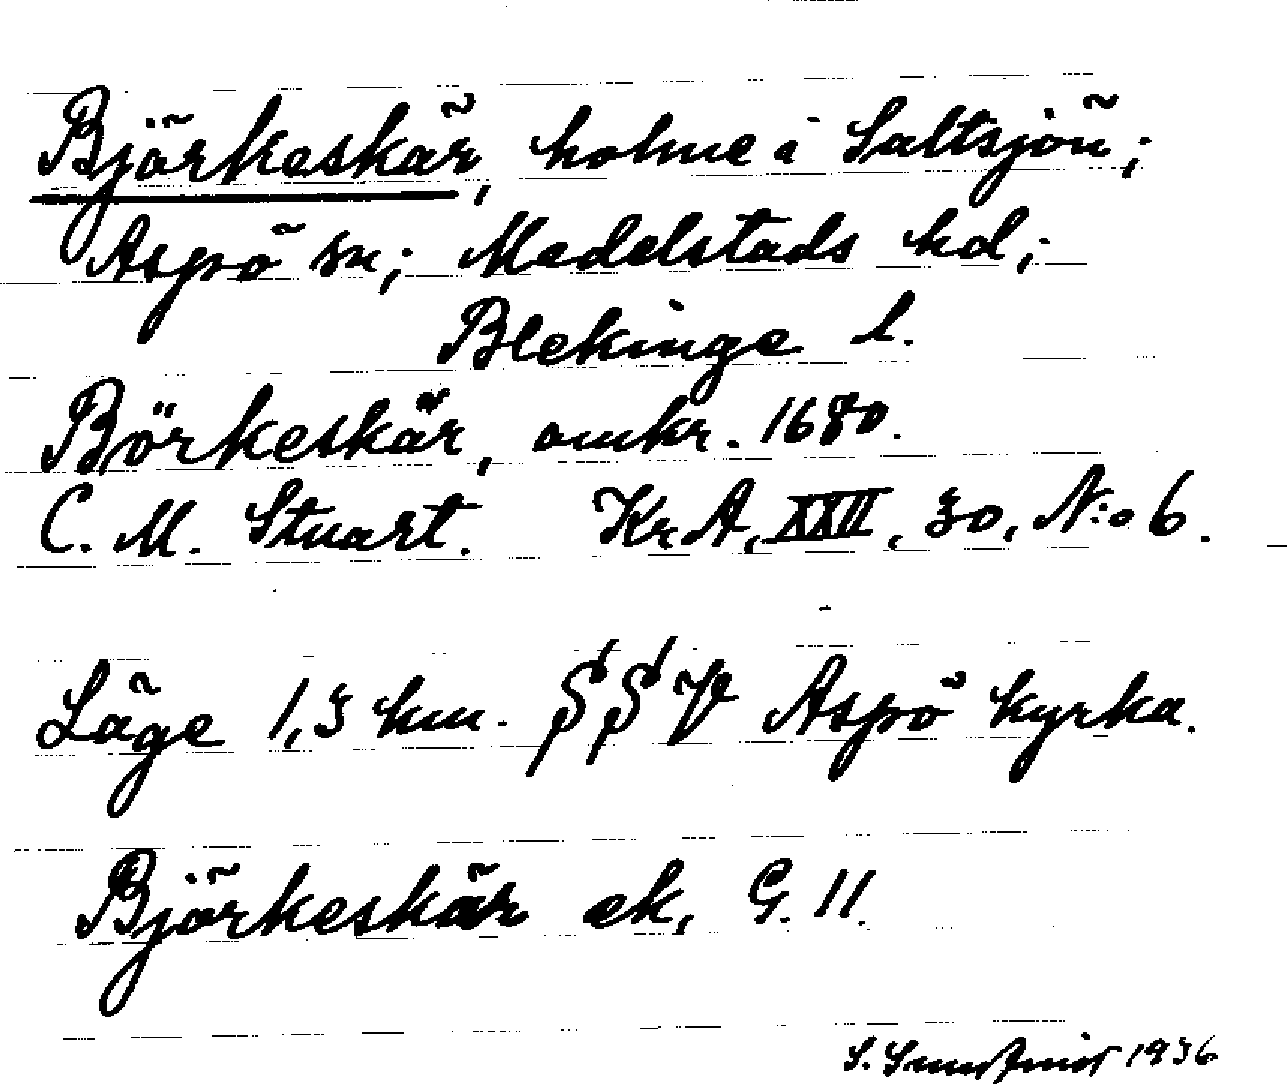 Björkeskär, holme i Saltsjön;
Aspö sn; Medelstads hd;
Blekinge l.
Börkeskär, omkr. 1680.
C. M. Stuart. KrA, XXII, 30, N:o 6.
Läge 1,3 km. SSV Aspö kyrka.
Björkeskär ek, G. 11.
S. 1936